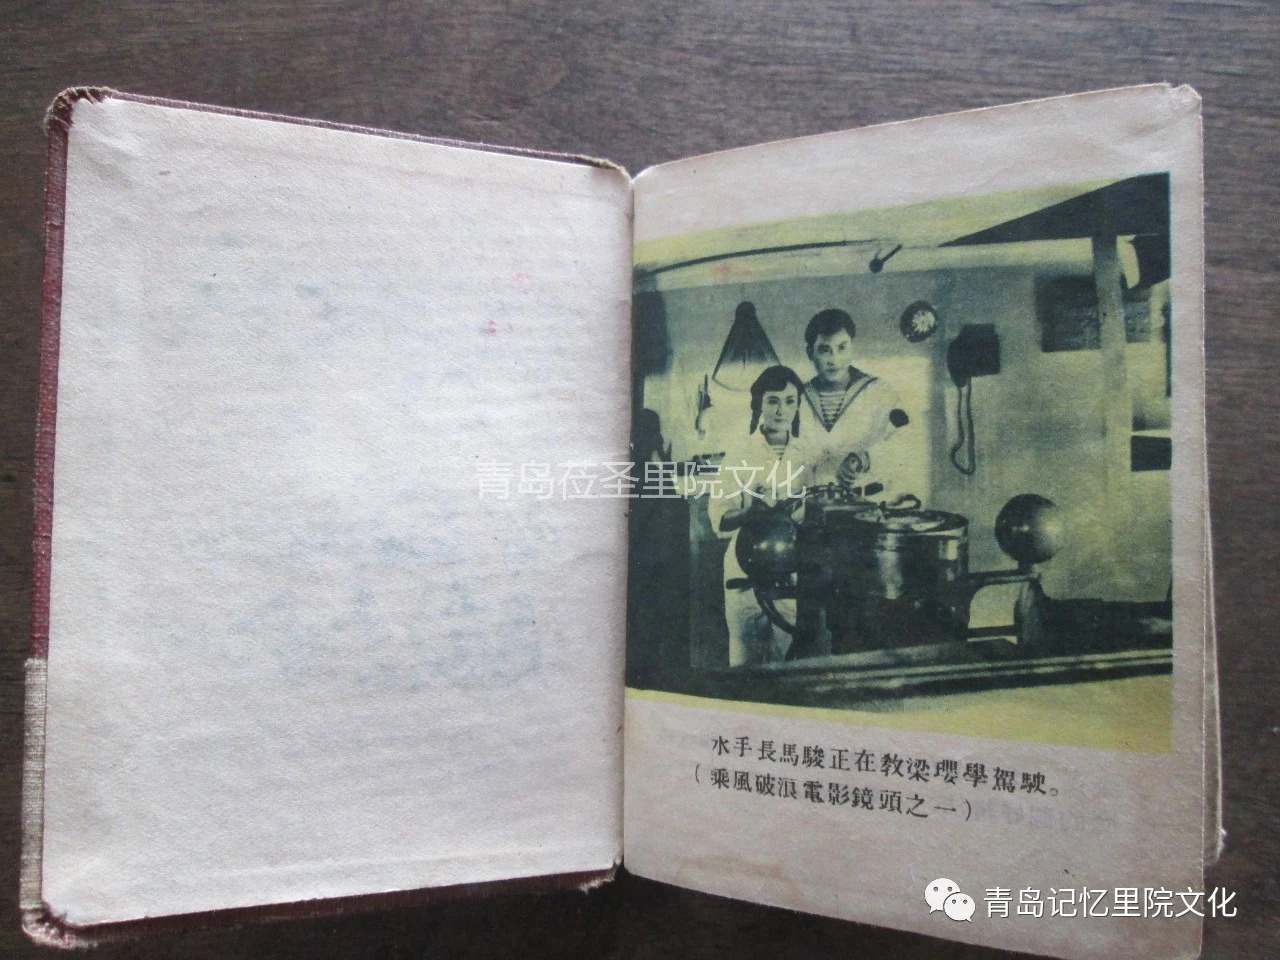 青岛莅圣里院文化
水手長馬駿正在教梁瓔學駕駛。
（乘風破浪電影鏡頭之一）
青岛记忆里院文化